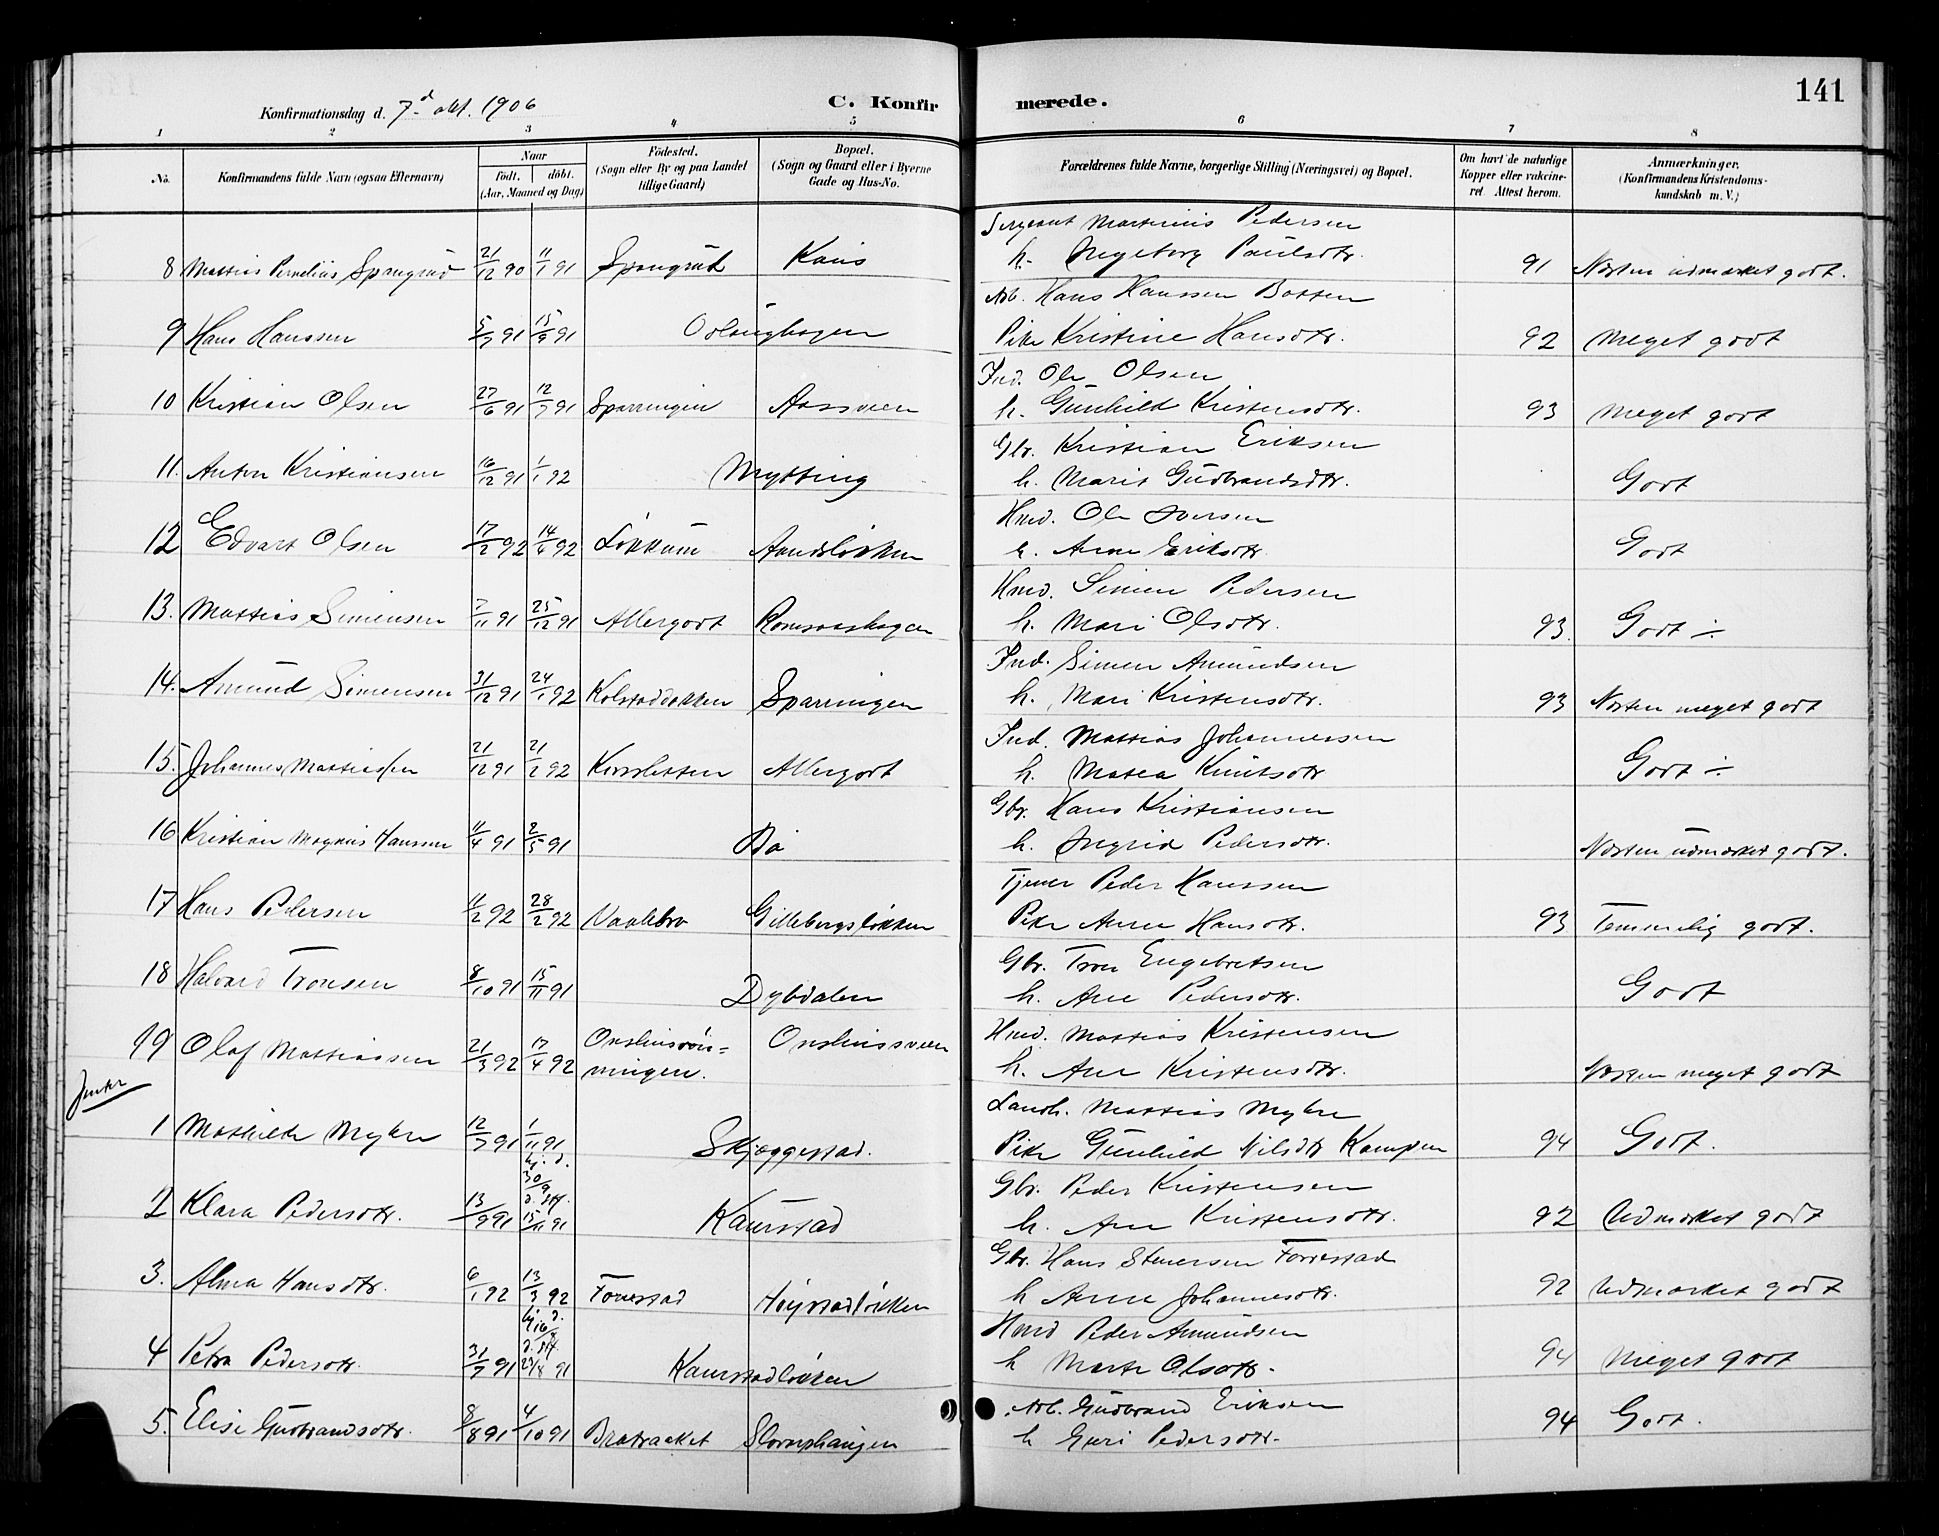 141
Konfirmationsdag d. 7d okt. 1906
C. Konfirmerede.
1 2 3 4 5 6 7 8
No. Konfirmandens fulde Navn (ogsaa Efternavn) Naar födt. döbt. (Aar, Maaned og Dag) Födested. (Sogn eller By og paa Landet tillige Gaard) Bopæl. (Sogn og Gaard eller i Byerne Gade og Hus-No. Forældrenes fulde Navne, borgerlige Stilling (Næringsvei) og Bopæl. Om havt de naturlige Kopper eller vakcineret. Attest herom. Anmærkninger. (Konfirmandens Kristendomskundskab m. V.)
Sergeant Martinius Pedersen
8 Mattias Kornelius Spangrud 21/12 90 11/1 91 Spangrud h. Ingeborg Paulsdtr. 91 Næsten udmærket godt.
Arb. Hans Hanssen Botten
9 Hans Hanssen 5/7 91 15/9 91 Pike Kristine Hansdtr. 92 Meget godt
Ind. Ole Olsen
10 Kristian Olsen 27/6 91 12/7 91 Sparringen Aassveen h. Gunhild Kristensdtr. 93 Meget godt
Gbr. Kristian Eriksen
11. Anton Kristiansen 16/12 91 1/1 92 Mytting h. Marit Gudbrandsdtr. Godt
Hmd. Ole Iversen
12 Edvart Olsen 17/2 92 14/4 92 Løkkum h. Anne Eriksdtr. Godt
Hmd. Simen Pedersen
13. Mattias Simensen 7/11 91 25/12 91 Allergodt Romsaashagen h. Mari Olsdtr. 93. Godt ÷
Ind. Simen Amundsen
14. Amund Simensen 31/12 91 24/1 92 Kolstadløkken Sparringen h. Mari Kristensdtr. 93 Næsten meget godt
Ind. Mattias Johannessen
15. Johannes Mattiassen 21/12 91 21/2 92 Korsletten Allergodt h. Matea Knutsdtr Godt ÷
Gbr. Hans Kristiansen
16 Kristian Magnus Hanssen 11/4 91 2/5 91 Bø h. Ingrid Pedersdtr. Næsten udmærket godt.
Tjener Peder Hanssen
17 Hans Pedersen 11/2 92 28/2 92 Vaalebro Gillebergsløkken Pike Anne Hansdtr. 93 Temmelig godt.
Gbr. Tron Engebretsen
18 Halvard Tronsen 8/10 91 15/11 91 Dybdalen h. Ane Pedersdtr. Godt
Hmd. Mattias Kristensen
19 Olaf Mattiassen 21/3 92 17/4 92 Onsliusrønningen. Onsliussveen h. Ane Kristensdtr. Næsten meget godt
Jenter
Landh. Mattias Myhre
1 Mathilde Myhre 12/7 91 1/11 91 Skjæggestad. Pike Gunhild Nilsdtr Kampen 94 Godt.
Gbr. Peder Kristensen
2 Klara Pedersdtr. 13/9 91 hj. d. 30/9 d. stf. 15/11 91 Kaurstad h. Ane Kristensdtr. 92 Udmærket godt
Gbr. Hans Stenersen Forrestad
3. Alma Hansdtr. 6/1 92 13/3 92 Forrestad Høystadløkken h Anne Johannesdtr. 92 Udmærket godt
Hmd Peder Amundsen
4 Petra Pedersdtr. 31/7 91 hj. d. 16/8 d. stf. 23/8 91 Kaurstadløkken h Marte Olsdtr. 94 Meget godt
Arb. Gudbrand Eriksen
5. Elise Gudbrandsdtr. 8/8 91 4/10 91 Bratbakket h Guri Pedersdtr. 94 Godt.